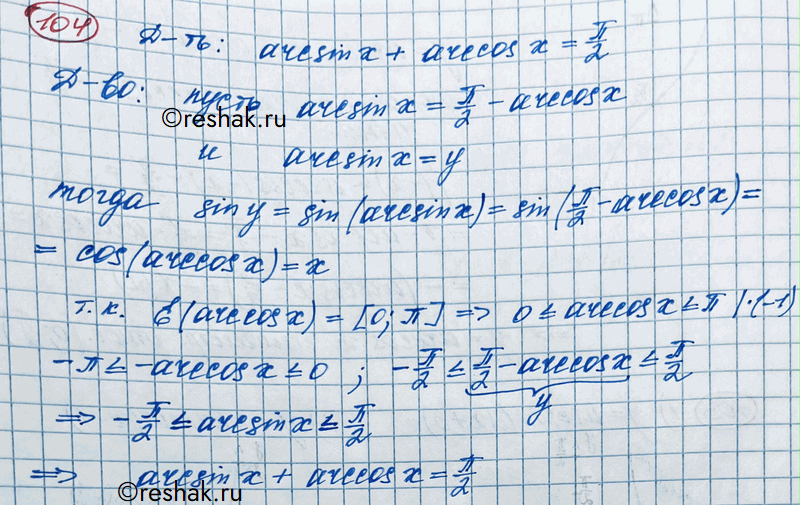 104
Д-ть: arcsin x + arccos x = π/2
Д-во: пусть arcsin x = π/2 - arccos x
©reshak.ru
и arcsin x = y
тогда sin y = sin (arcsin x) = sin(π/2 - arccos x) =
= cos(arccos x) = x
т.к. E(arccos x) = [0; π] => 0 ≤ arccos x ≤ π |·(-1)
-π ≤ -arccos x ≤ 0 ; -π/2 ≤ π/2 - arccos x ≤ π/2
y
=> -π/2 ≤ arcsin x ≤ π/2
=> arcsin x + arccos x = π/2
©reshak.ru